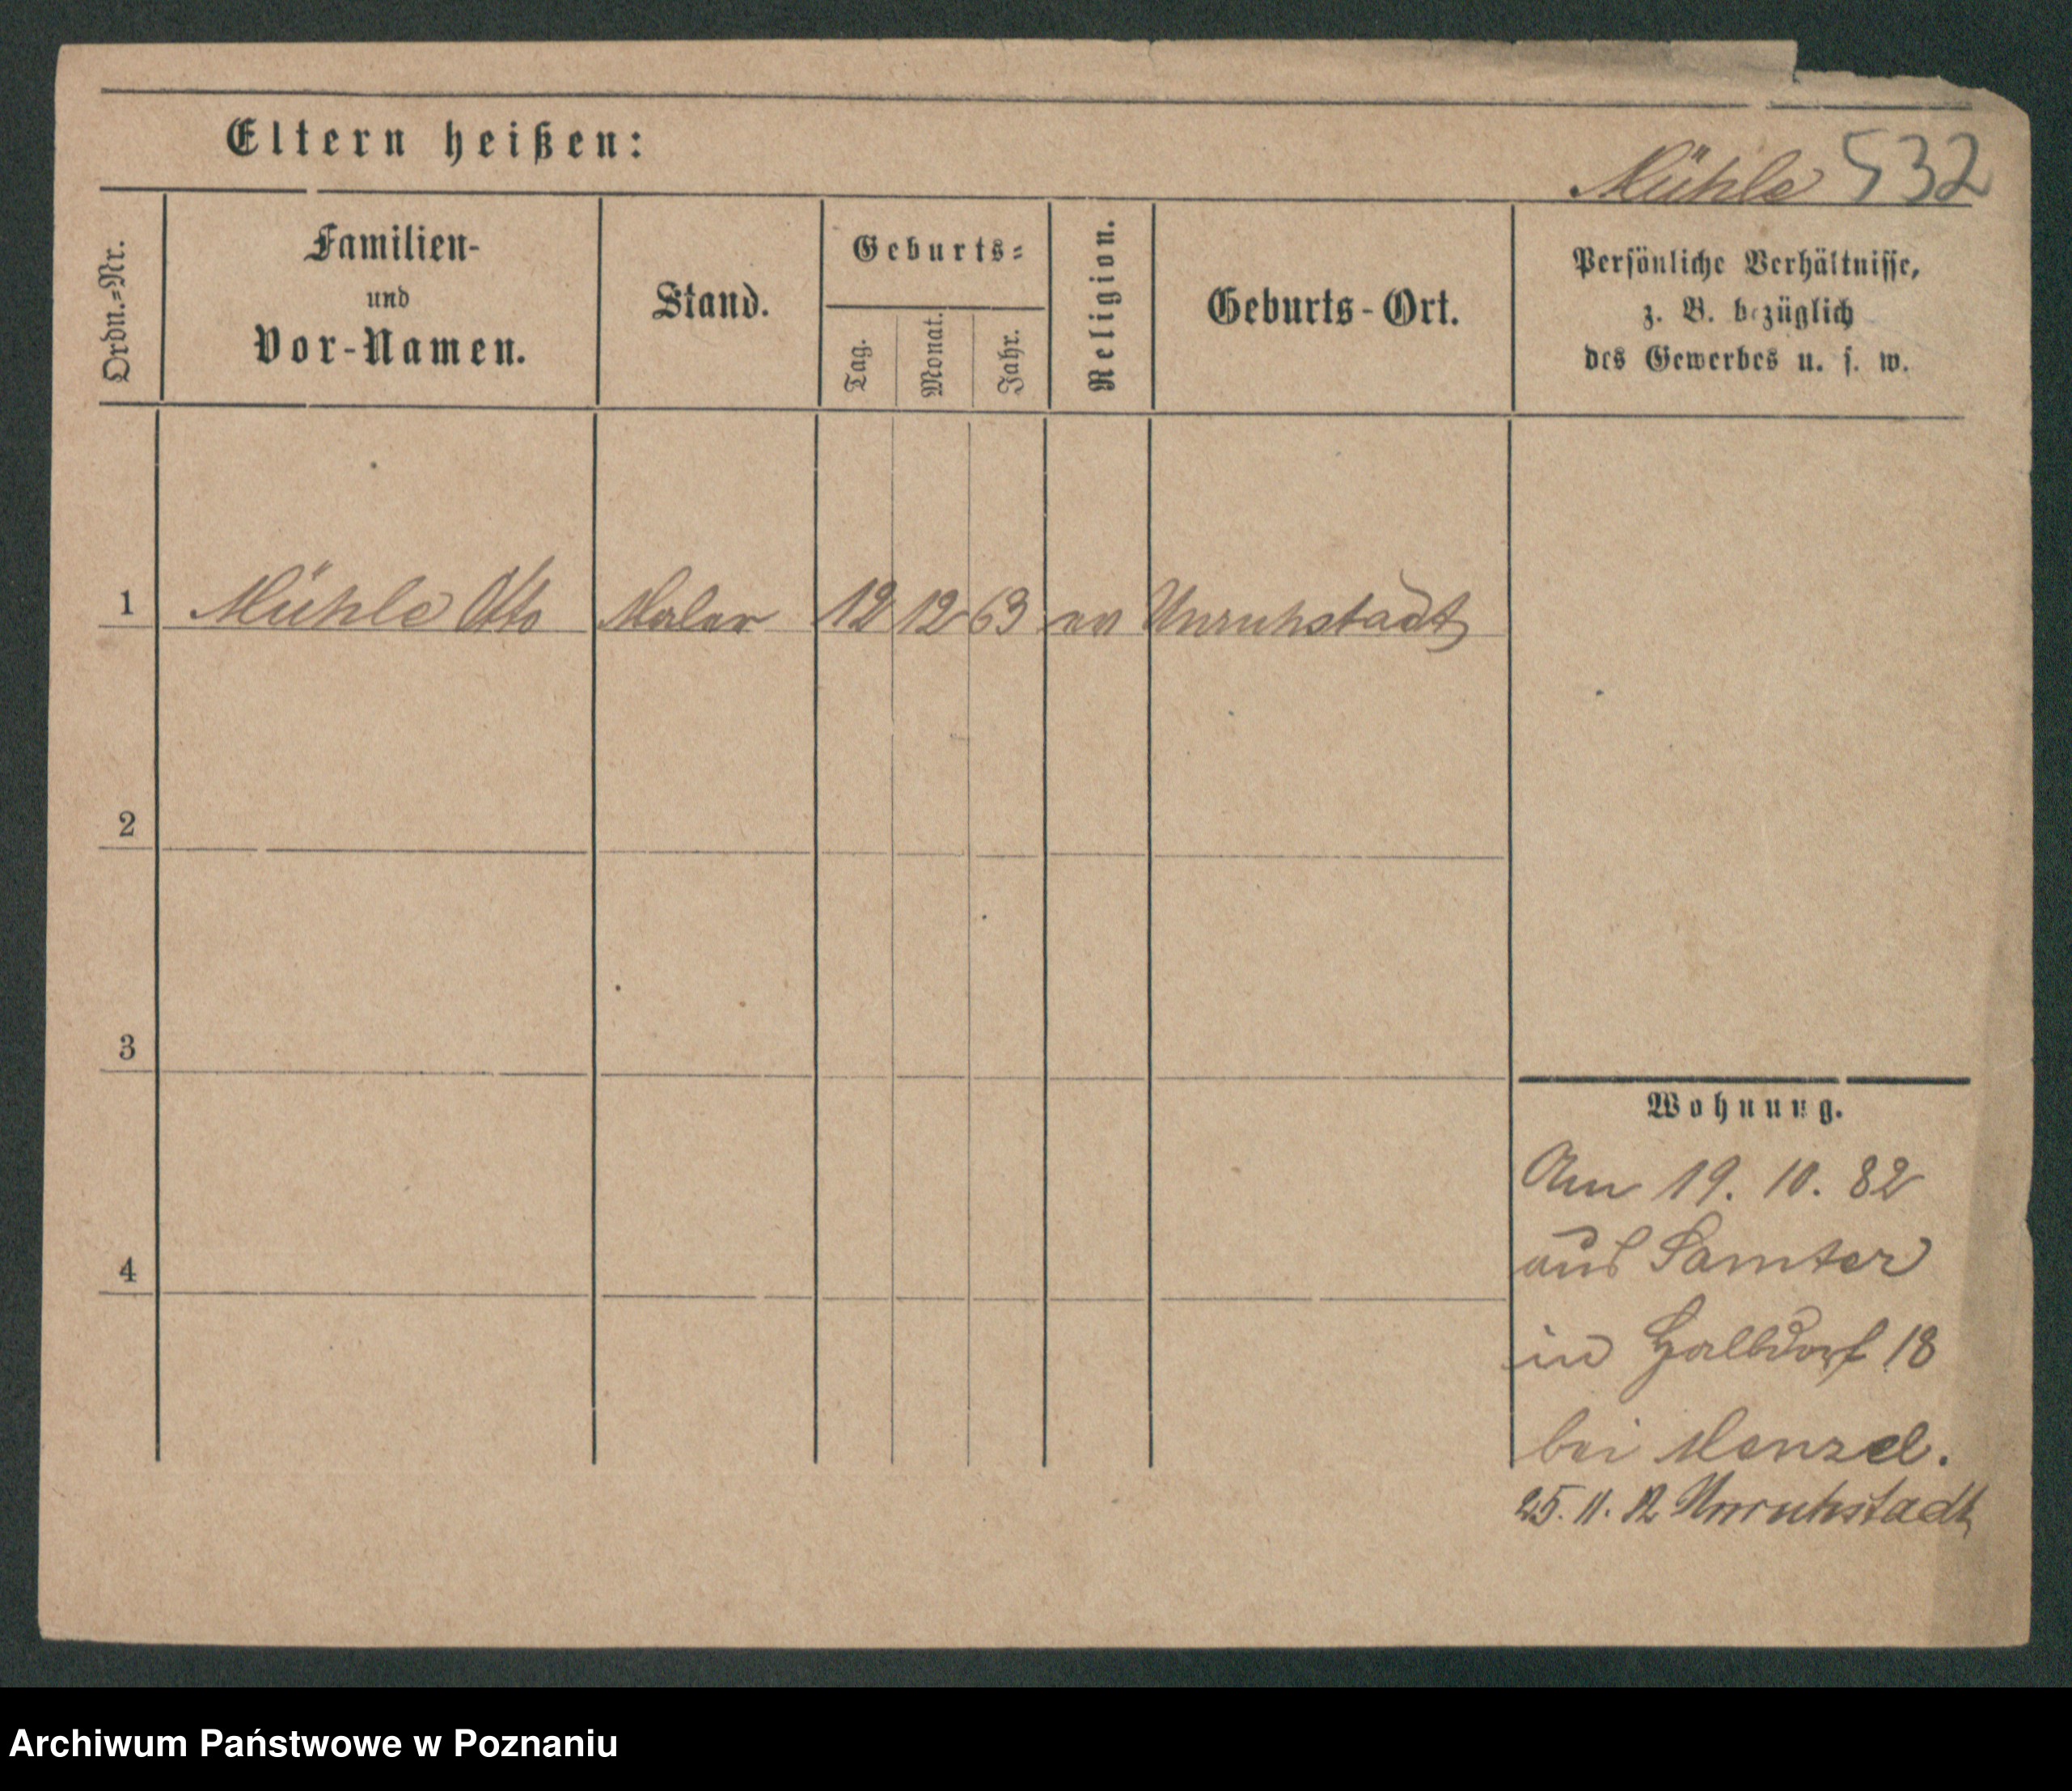 Eltern heißen:
Mühle 532
Ordn.=Nr.
Familien-
und
Vor-Namen.
Stand.
Geburts=
Tag.
Monat.
Jahr.
Religion.
Geburts-Ort.
Persönliche Verhältnisse,
z. B. bezüglich
des Gewerbes u. s. w.
1 Mühle Otto Maler 12 12 63 ev Unruhstadt
2
3
4
Wohnung.
Am 19. 10. 82
aus Samter
in Halbdorf 18
bei Menzel.
25. 11. 82 Unruhstadt
Archiwum Państwowe w Poznaniu